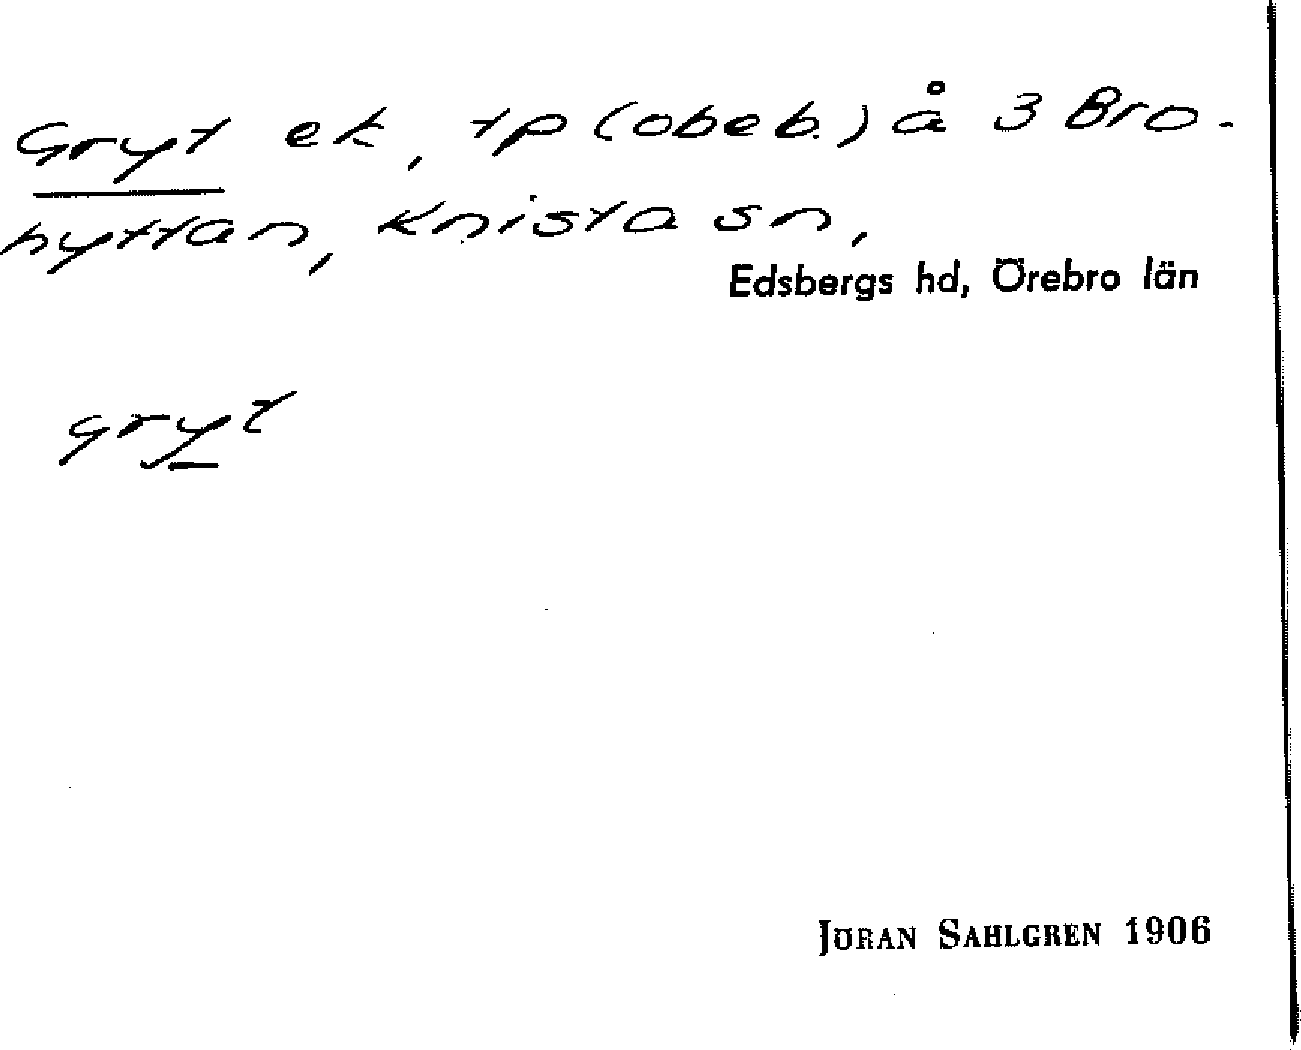 Gryt ek, tp (obeb.) å 3 Bro-
hyttan, Knista sn,
Edsbergs hd, Örebro län
gryt
JÖRAN SAHLGREN 1906